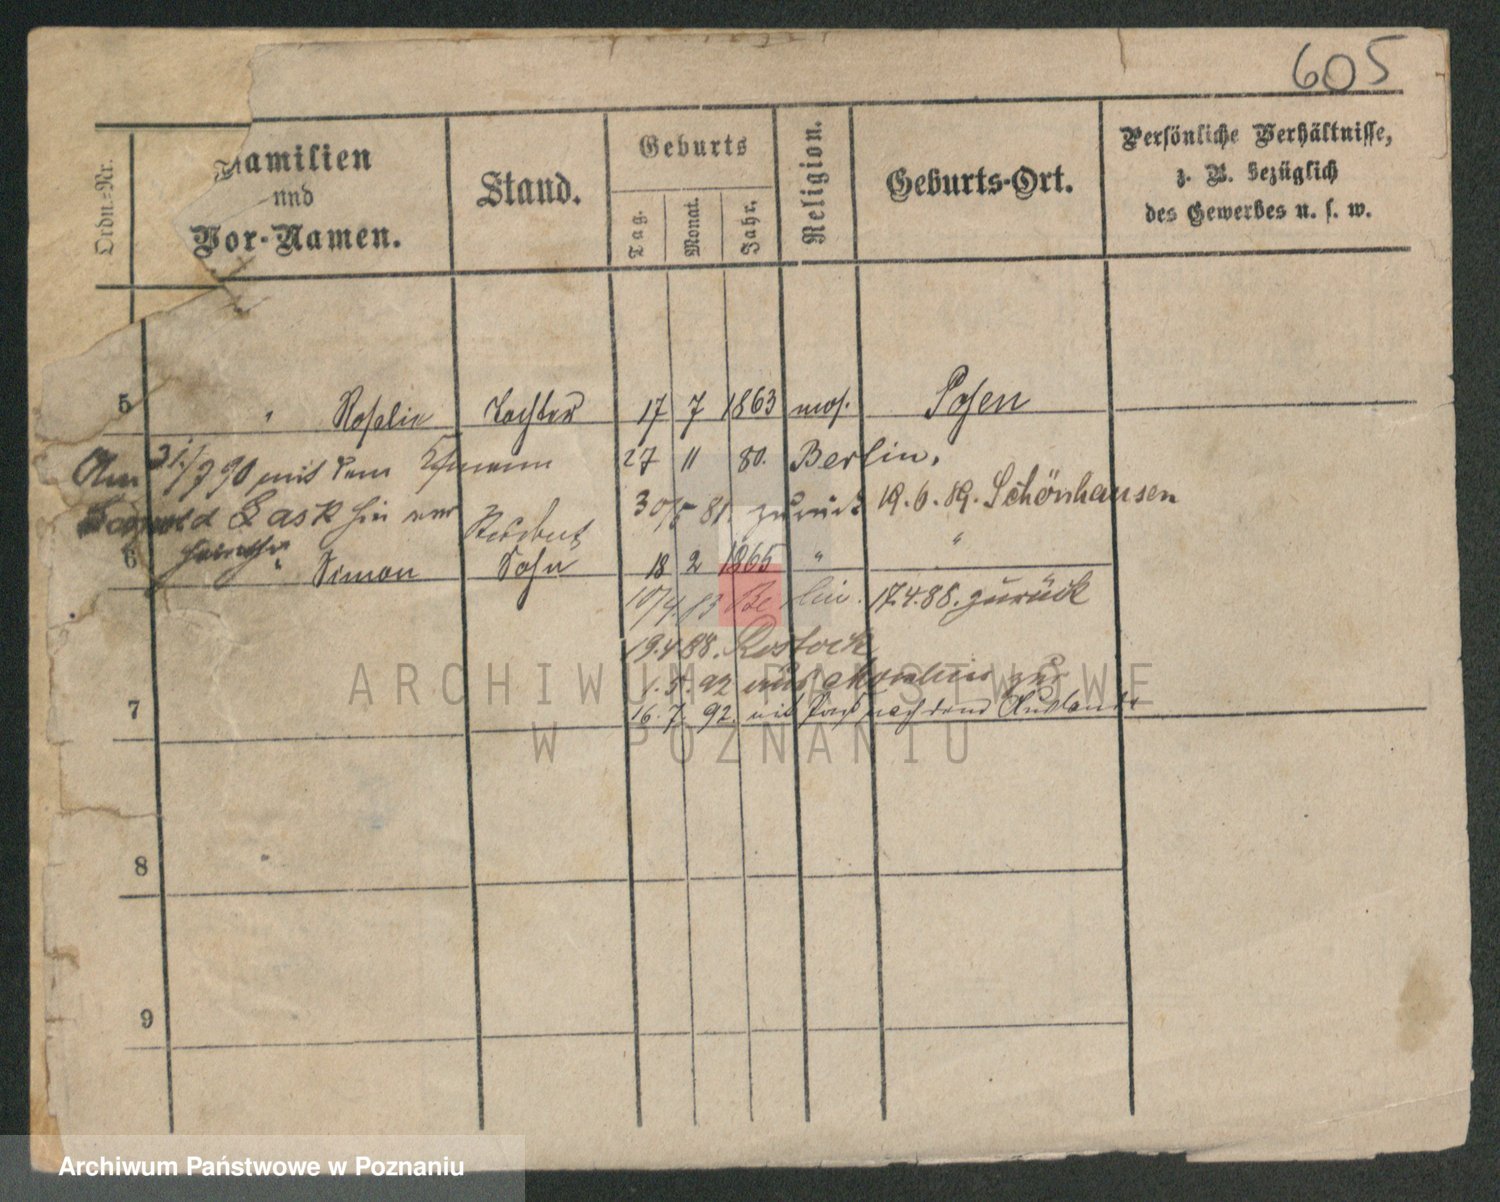 605
Ordn.-Nr.
Familien
und
Vor-Namen.
Stand.
Geburts
Tag.
Monat.
Jahr.
Religion.
Geburts-Ort.
Persönliche Verhältnisse,
z. B. bezüglich
des Gewerbes u. s. w.
5 " Rosalie Tochter 17 7 1863 mos. Posen
Am 31./7 90 mit dem Ehemann 27 11 80. Berlin.
Leopold Lask hier 30/5 81. zurück 19.6.89. Schönhausen
6 " Simon Sohn 18 2 1865 " "
10/4.83 Berlin. 17.4.88. zurück
19.4.88. Rostock
1.5.92 aus zur
7 16.7.92. mit Pass nach dem Auslande
8
9
ARCHIWUM PAŃSTWOWE
W POZNANIU
Archiwum Państwowe w Poznaniu